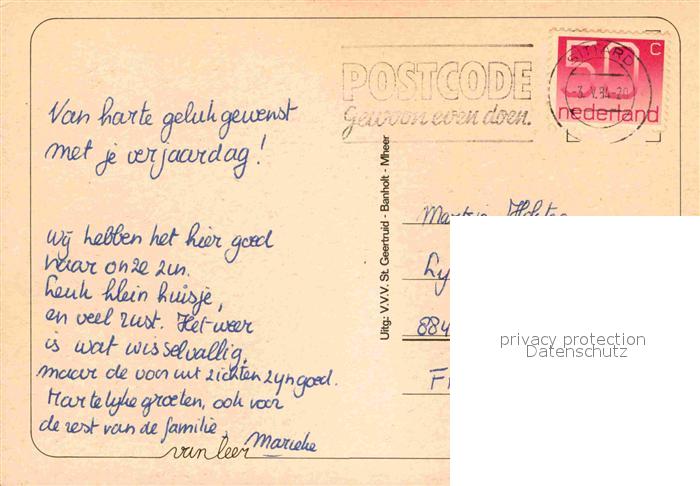 Van harte geluk gewenst
met je verjaardag!
Wij hebben het hier goed
naar onze zin.
Leuk klein huisje,
en veel rust. Het weer
is wat wisselvallig,
maar de vooruitzichten zijn goed.
Hartelijke groeten, ook voor
de rest van de familie,
van leer Marieke
POSTCODE
Gewoon even doen.
SITTARD
-3. V. 84-20
50 C
nederland
Uitg: V.V.V. St. Geertruid - Banholt - Mheer
Ly
884
Fr
privacy protection
Datenschutz